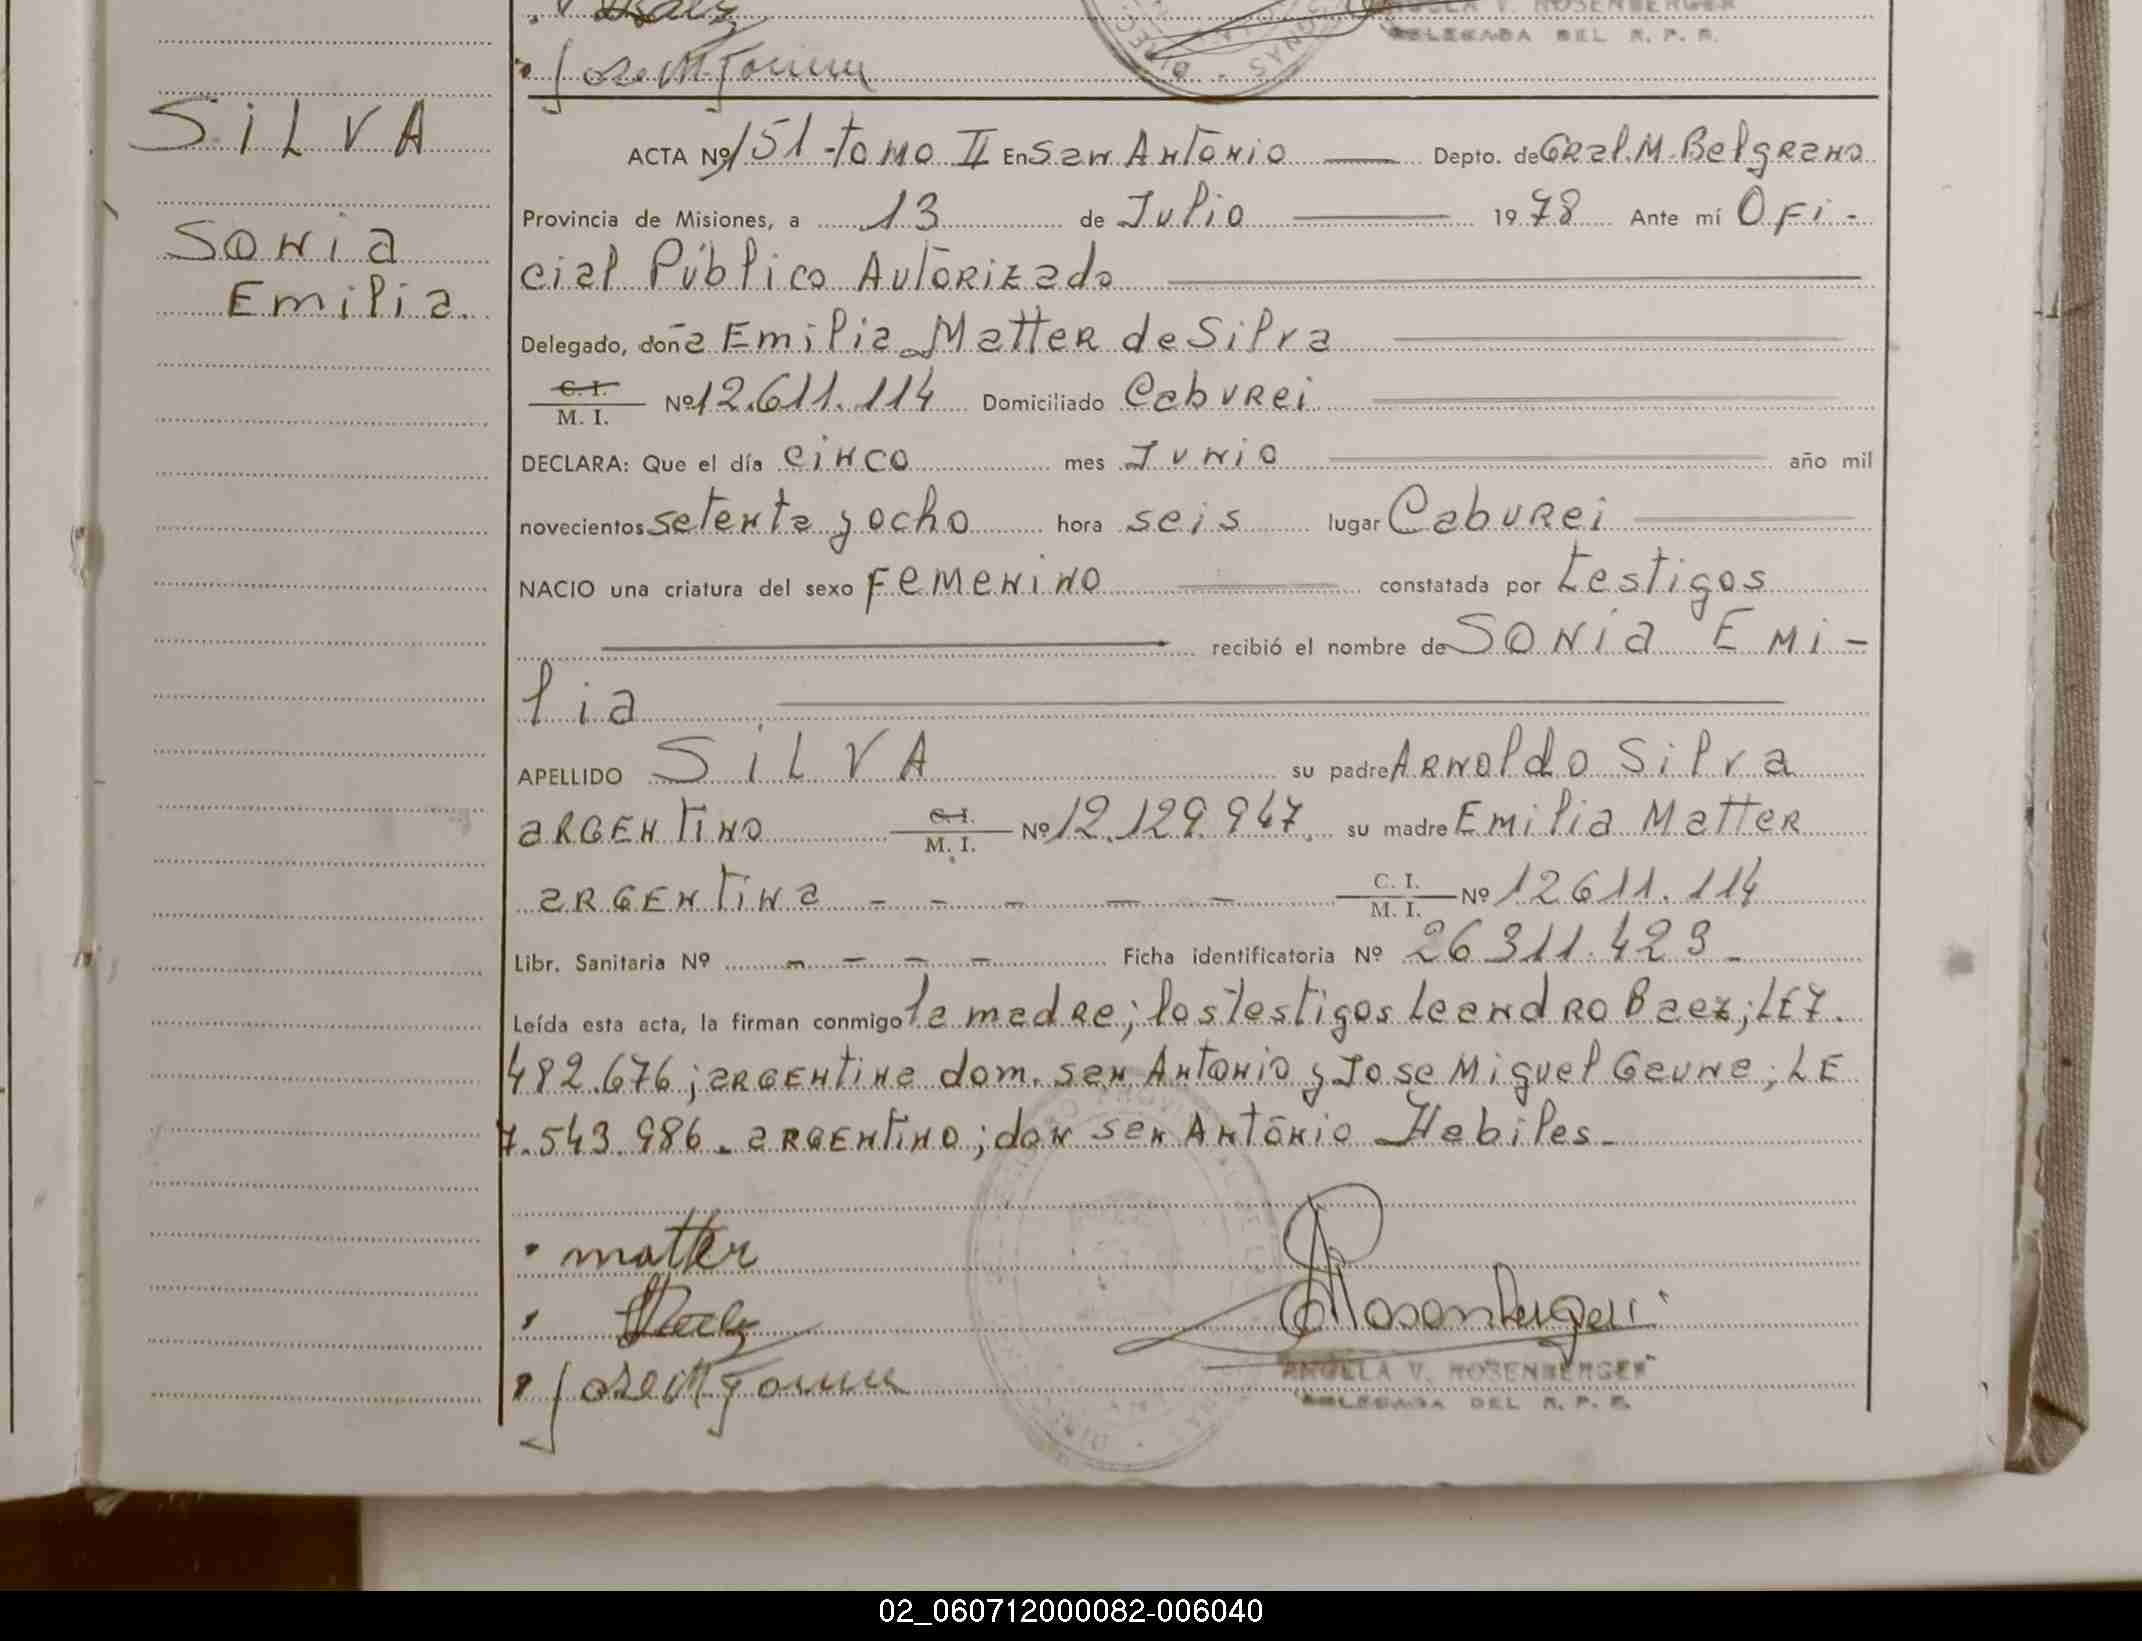 DELEGADA DEL R. P. P.
SILVA
Sonia
Emilia.
ACTA Nº 151 - tomo II En San Antonio Depto. de Gral. M. Belgrano
Provincia de Misiones, a 13 de Julio 1978 Ante mí Ofi-
cial Público Autorizado
Delegado, doña Emilia Matter de Silva
C. I.
M. I. Nº 12.611.114 Domiciliado Caburei
DECLARA: Que el día cinco mes Junio año mil
novecientos setenta y ocho hora seis lugar Caburei
NACIO una criatura del sexo Femenino constatada por testigos
recibió el nombre de SONia EMi-
lia
APELLIDO SILVA su padre Arnoldo Silva
argentino C. I. M. I. Nº 12.129.947. su madre Emilia Matter
argentina - - - - - C. I. M. I. Nº 12611.114
Libr. Sanitaria Nº - - - - Ficha identificatoria Nº 26311.423-
Leída esta acta, la firman conmigo la madre; los testigos Leandro Baez; LE 7.
482.676; argentine dom. San Antonio y Jose Miguel Gaune; LE
7.543.986. argentino; dom San Antonio Habiles-
matter
Rosenberger
ANGELA V. ROSENBERGER
DELEGADA DEL R. P. P.
02_060712000082-006040